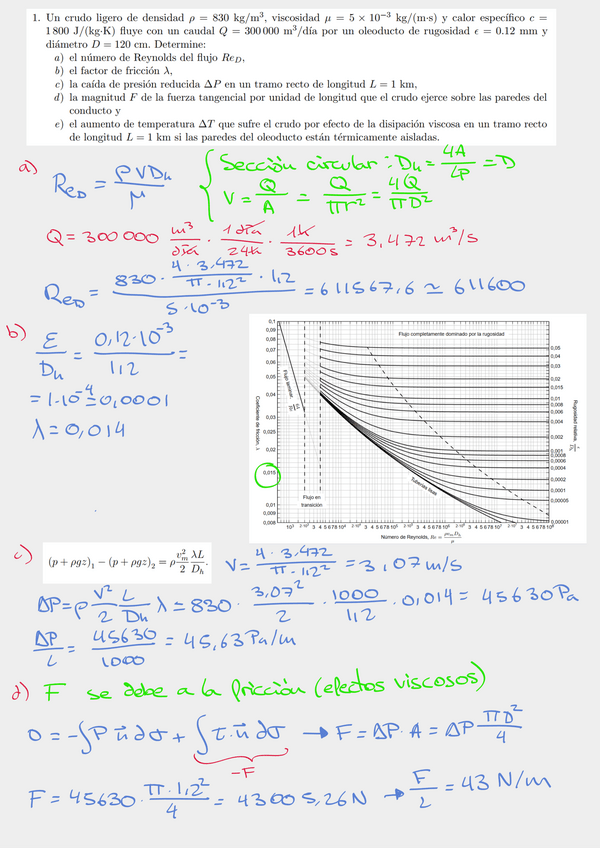 1. Un crudo ligero de densidad ρ = 830 kg/m³, viscosidad μ = 5 × 10⁻³ kg/(m·s) y calor específico c =
1 800 J/(kg·K) fluye con un caudal Q = 300 000 m³/día por un oleoducto de rugosidad ϵ = 0.12 mm y
diámetro D = 120 cm. Determine:
a) el número de Reynolds del flujo Re_D,
b) el factor de fricción λ,
c) la caída de presión reducida ΔP en un tramo recto de longitud L = 1 km,
d) la magnitud F de la fuerza tangencial por unidad de longitud que el crudo ejerce sobre las paredes del
conducto y
e) el aumento de temperatura ΔT que sufre el crudo por efecto de la disipación viscosa en un tramo recto
de longitud L = 1 km si las paredes del oleoducto están térmicamente aisladas.
a) Re_D = ρVD_h/μ { Sección circular : D_h = 4A/LP = D
V = Q/A = Q/πr² = 4Q/πD²
Q = 300 000 m³/día · 1 día/24h · 1h/3600s = 3,472 m³/s
Re_D = 830 · (4 · 3,472/π · 1,2²) · 1,2 / 5·10⁻³ = 611567,6 ≃ 611600
b) ε/D_h = 0,12·10⁻³/1,2 =
= 1·10⁻⁴ = 0,0001
λ = 0,014
Flujo completamente dominado por la rugosidad
Flujo laminar,
Coeficiente de fricción, λ
0,1
0,09
0,08
0,07
0,06
0,05
0,04
0,03
0,025
0,02
0,015
0,01
0,009
0,008
Flujo en
transición
Tuberías lisas
0,05
0,04
0,03
0,02
0,015
0,01
0,008
0,006
0,004
0,002
0,001
0,0008
0,0006
0,0004
0,0002
0,0001
0,00005
0,00001
Rugosidad relativa, ε/D_h
10³ 2 10³ 3 4 5 6 7 8 10⁴ 2 10⁴ 3 4 5 6 7 8 10⁵ 2 10⁵ 3 4 5 6 7 8 10⁶ 2 10⁶ 3 4 5 6 7 8 10⁷ 2 10⁷ 3 4 5 6 7 8 10⁸
Número de Reynolds, Re = ρv_mD_h/μ
c) (p + ρgz)₁ − (p + ρgz)₂ = ρ v_m²/2 λL/D_h. V = 4 · 3,472/π · 1,2² = 3,07 m/s
ΔP = ρ V²/2 L/D_h λ = 830 · 3,07²/2 · 1000/1,2 · 0,014 = 45630 Pa
ΔP/L = 45630/1000 = 45,63 Pa/m
d) F se debe a la fricción (efectos viscosos)
0 = -∫P n⃗ dσ + ∫τ·n⃗ dσ → F = ΔP · A = ΔP πD²/4
-F
F = 45630 · π · 1,2²/4 = 43005,26 N → F/L = 43 N/m